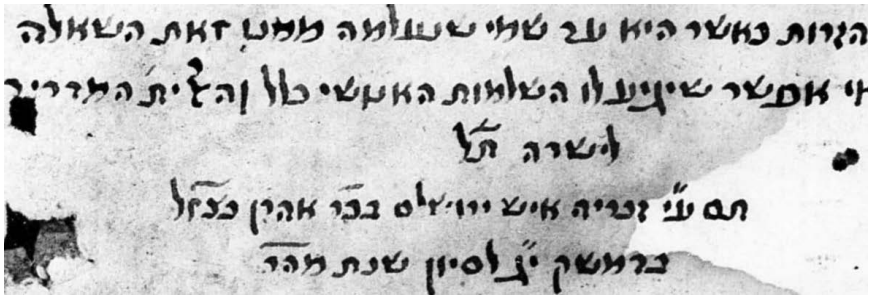 הזרות כאשר היא עד שמי שנעלמה ממנו זאת השאלה
אי אפשר שיגיע לו השלמות האנושי כלל המדריך
לישרה
תם ע״י זכריה איש ירושלם בכ״ר אהרן
בדמשק י״ג לסיון שנת